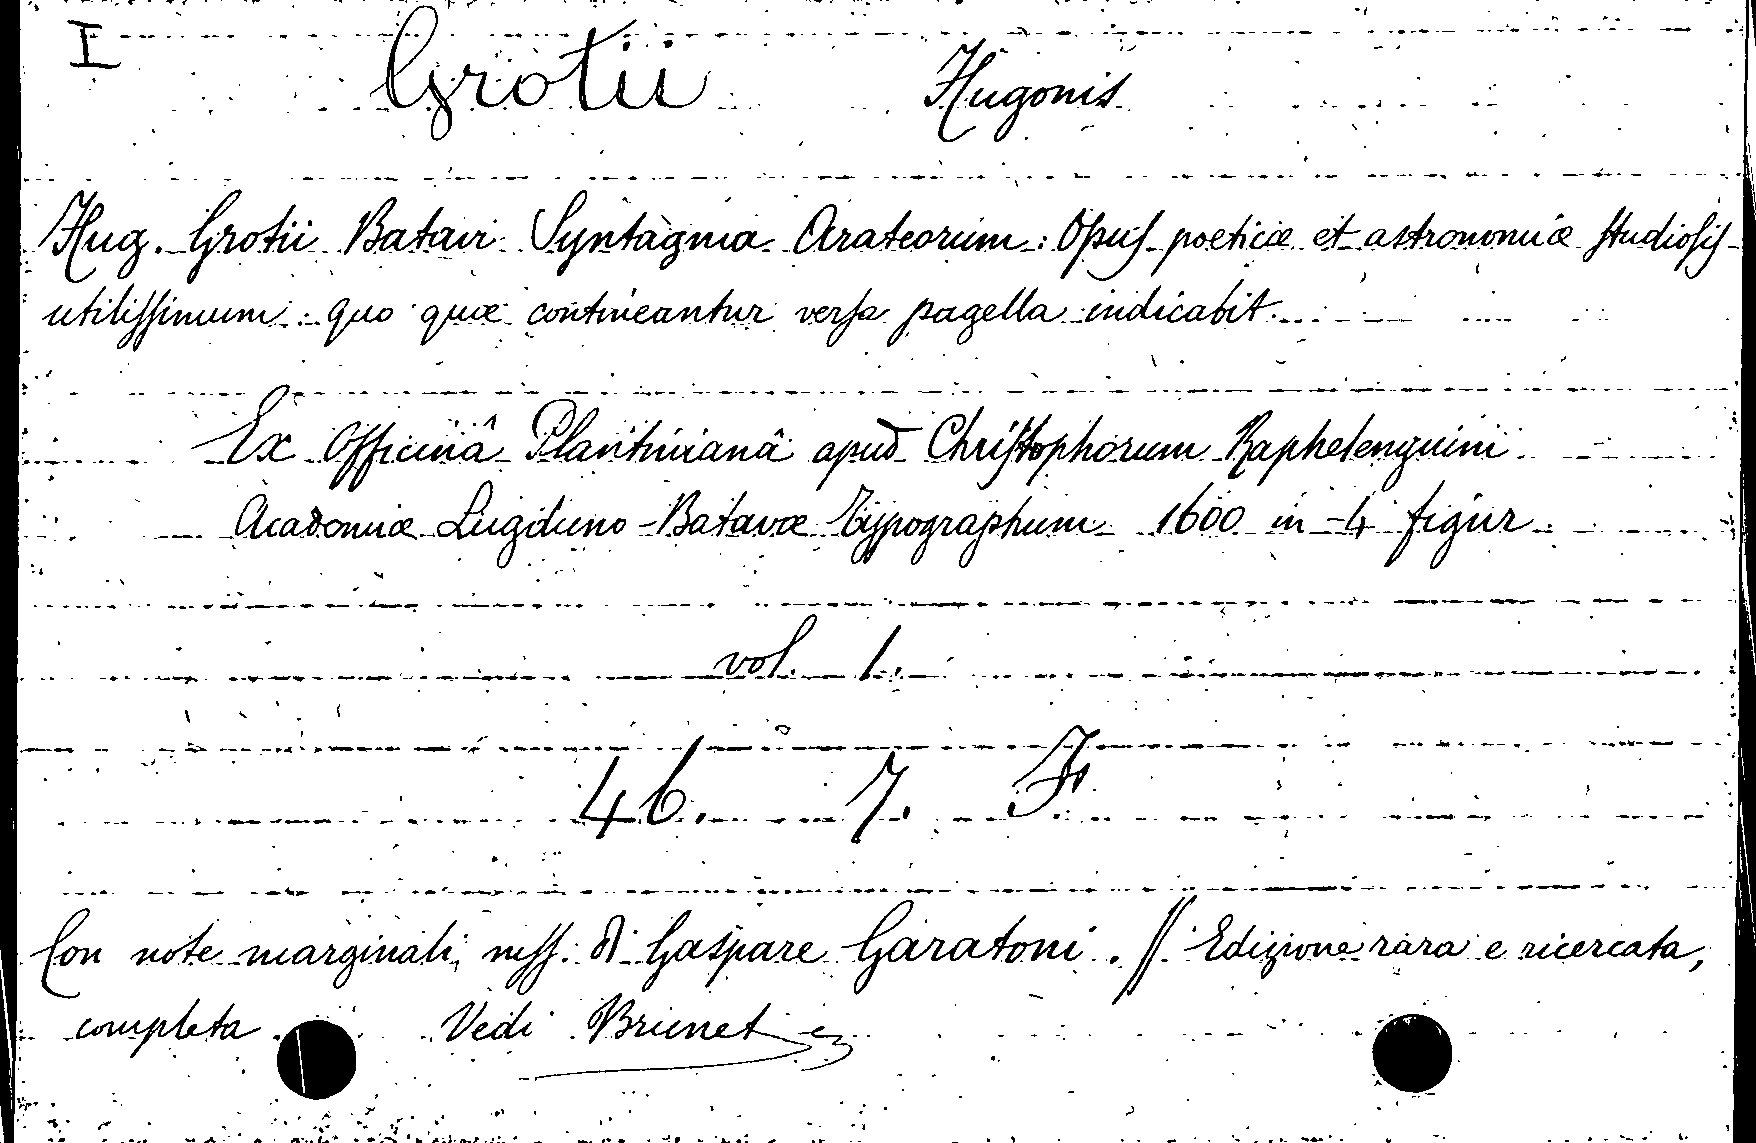 I Grotii Hugonis
Hug. Grotii Batavi Syntagma Arateorum: Opuſ poeticæ et astronomiæ ſtudioſiſ
utiliſſimum: quo quæ contineantur verſa pagella indicabit.
Ex Officinâ Plantinianâ apud Chriſtophorum Raphelenguini
Academiæ Lugduno-Batavæ Typographum 1600 in-4 figur.
vol. 1.
46. 7. F.
Con note marginali mſſ. di Gaspare Garatoni. // Edizione rara e ricercata,
completa. Vedi Brunet